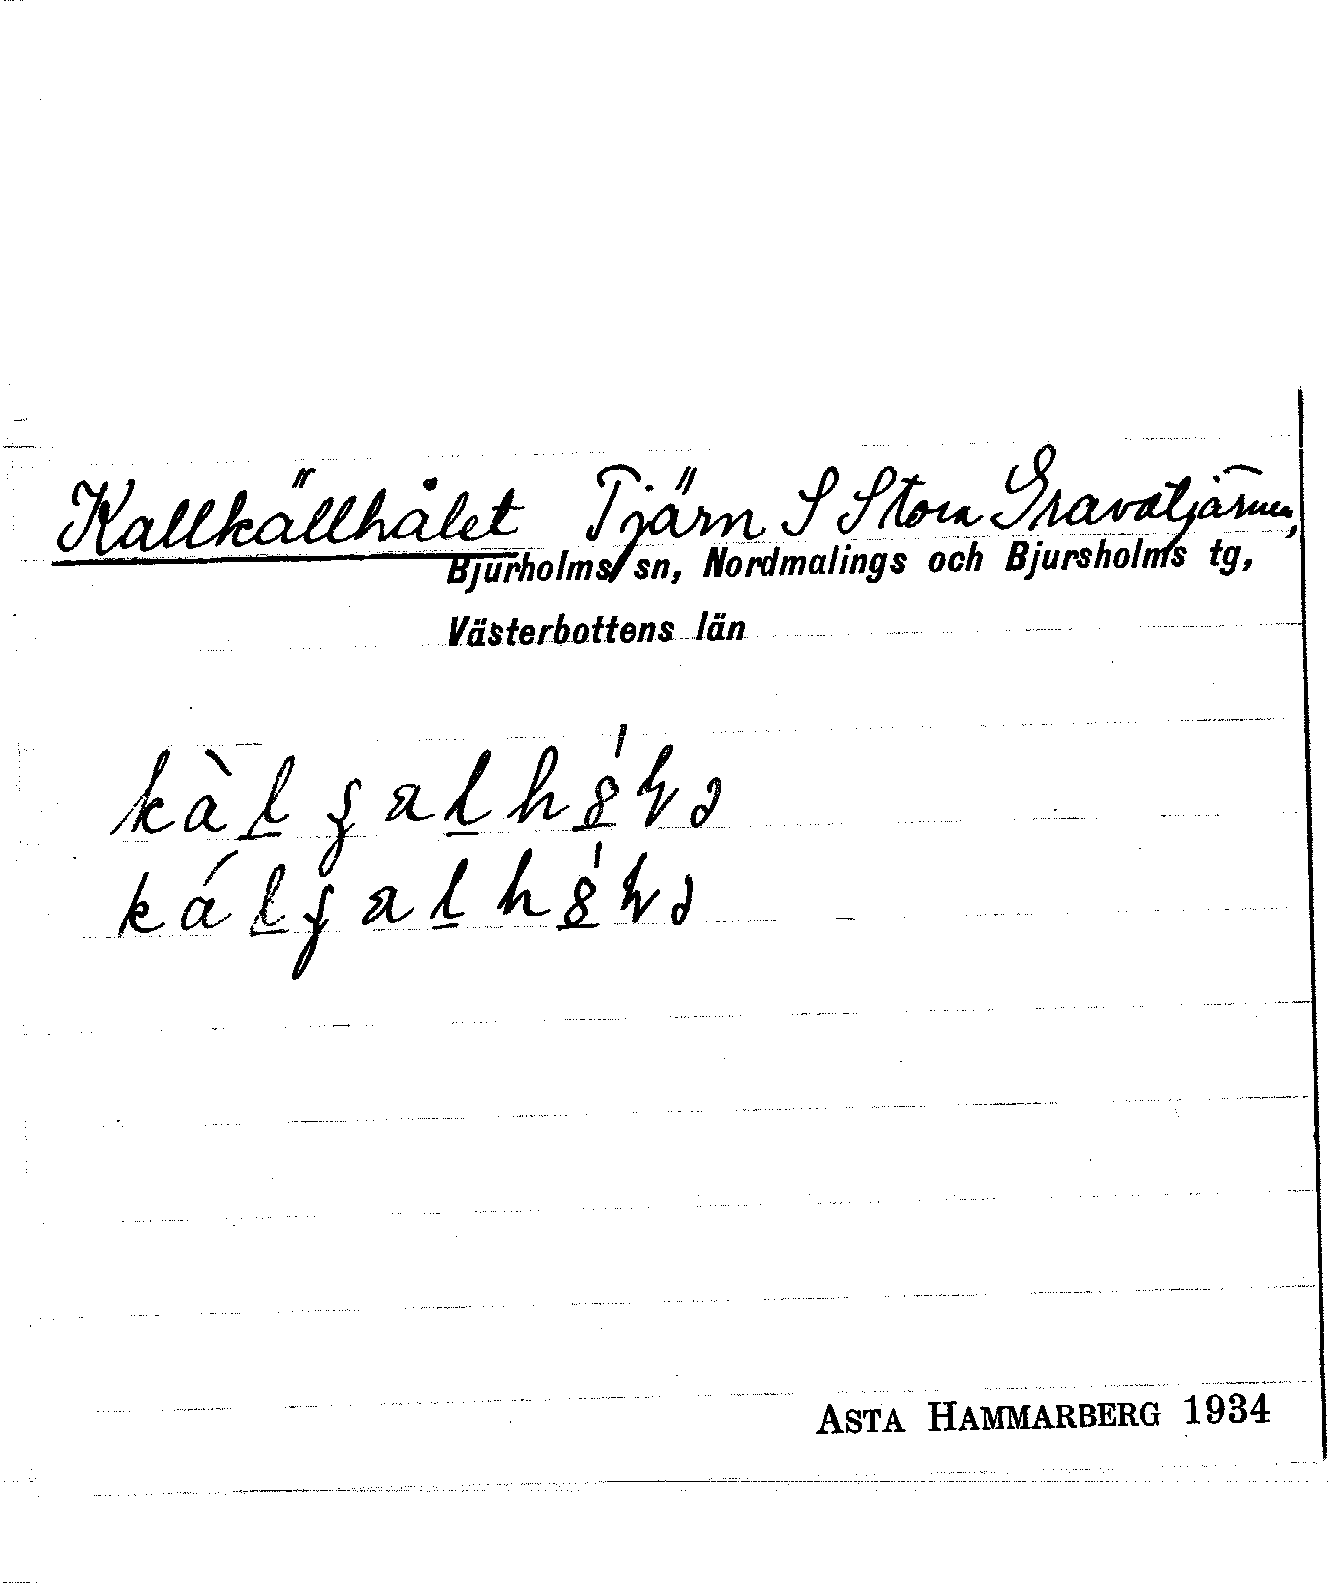 Kallkällhålet Tjärn S Stora Gravatjärnen,
Bjurholms sn, Nordmalings och Bjursholms tg,
Västerbottens län
ASTA HAMMARBERG 1934